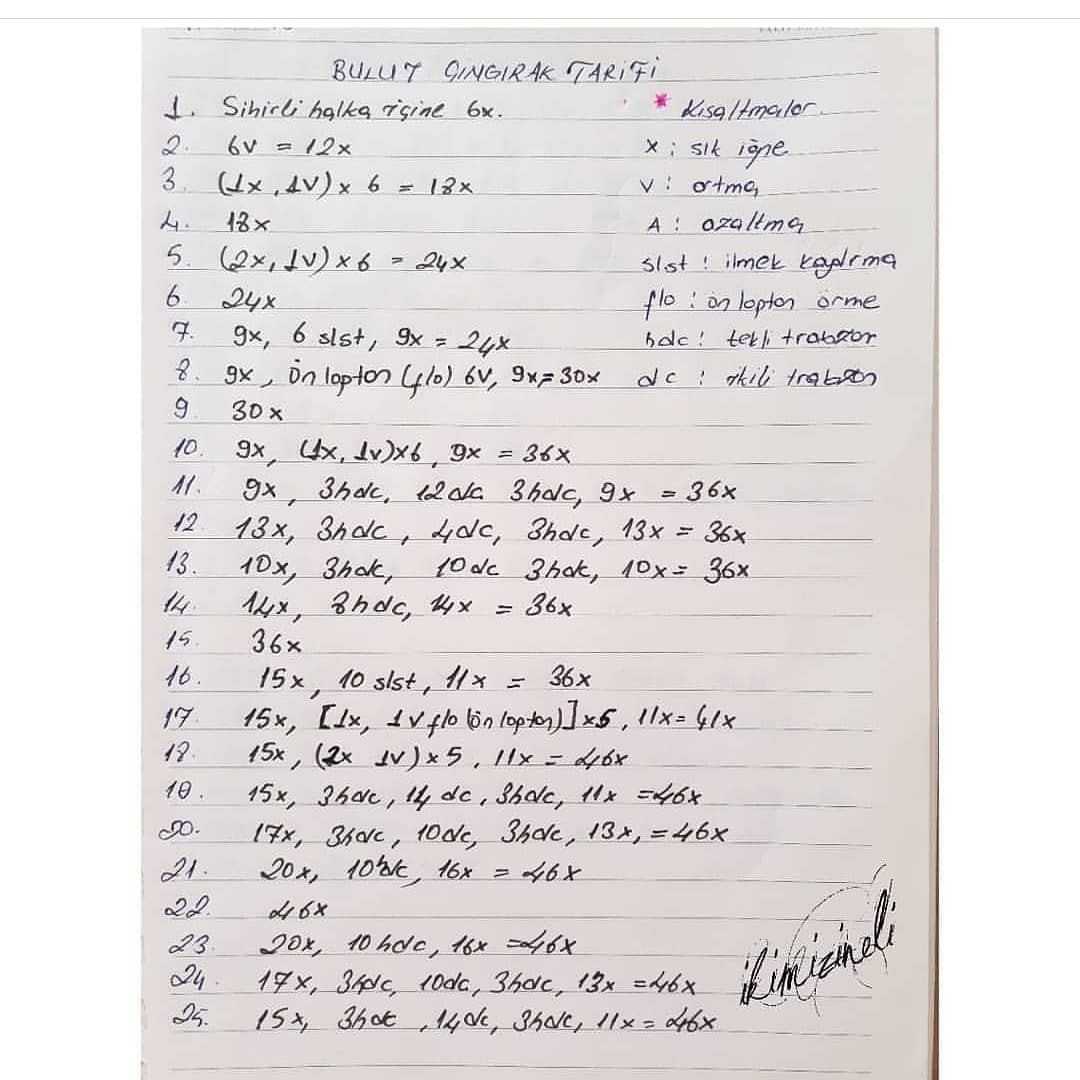 BULUT ÇINGIRAK TARİFİ
1. Sihirli halka içine 6x.
* Kısaltmalar.
2. 6v = 12x
x : sık iğne
3. (1x, 1v) x 6 = 18x
v : artma
4. 18x
A : azaltma
5. (2x, 1v) x 6 = 24x
slst : ilmek kaydırma
6. 24x
flo : ön loptan örme
7. 9x, 6 slst, 9x = 24x
hdc : tekli trabzan
8. 9x, Ön loptan (flo) 6v, 9x = 30x
dc : ikili trabzan
9. 30x
10. 9x, (1x, 1v)x6, 9x = 36x
11. 9x, 3hdc, 12dc 3hdc, 9x = 36x
12. 13x, 3hdc, 4dc, 3hdc, 13x = 36x
13. 10x, 3hdc, 10dc 3hdc, 10x = 36x
14. 14x, 8hdc, 14x = 36x
15. 36x
16. 15x, 10 slst, 11x = 36x
17. 15x, [1x, 1v flo (ön loptan)]x5, 11x = 41x
18. 15x, (2x 1v) x 5, 11x = 46x
19. 15x, 3hdc, 14 dc, 3hdc, 11x = 46x
20. 17x, 3hdc, 10dc, 3hdc, 13x, = 46x
21. 20x, 10hdc, 16x = 46x
22. 46x
23. 20x, 10hdc, 16x = 46x
24. 17x, 3hdc, 10dc, 3hdc, 13x = 46x
25. 15x, 3hdc, 14dc, 3hdc, 11x = 46x
ikimizineli